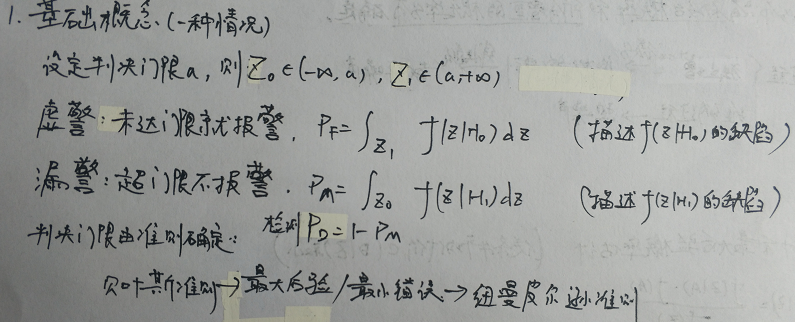 1. 基础概念. (一种情况)
设定判决门限a, 则 Z₀∈(-∞, a), Z₁∈(a,+∞)
虚警: 未达门限就报警. P_F=∫_{Z₁} f(Z|H₀)dZ (描述f(Z|H₀)的缺陷)
漏警: 超门限不报警. P_M=∫_{Z₀} f(Z|H₁)dZ (描述f(Z|H₁)的缺陷)
判决门限由准则确定: 检测 P_D=1-P_M
贝叶斯准则→最大后验/最小错误→纽曼皮尔逊准则